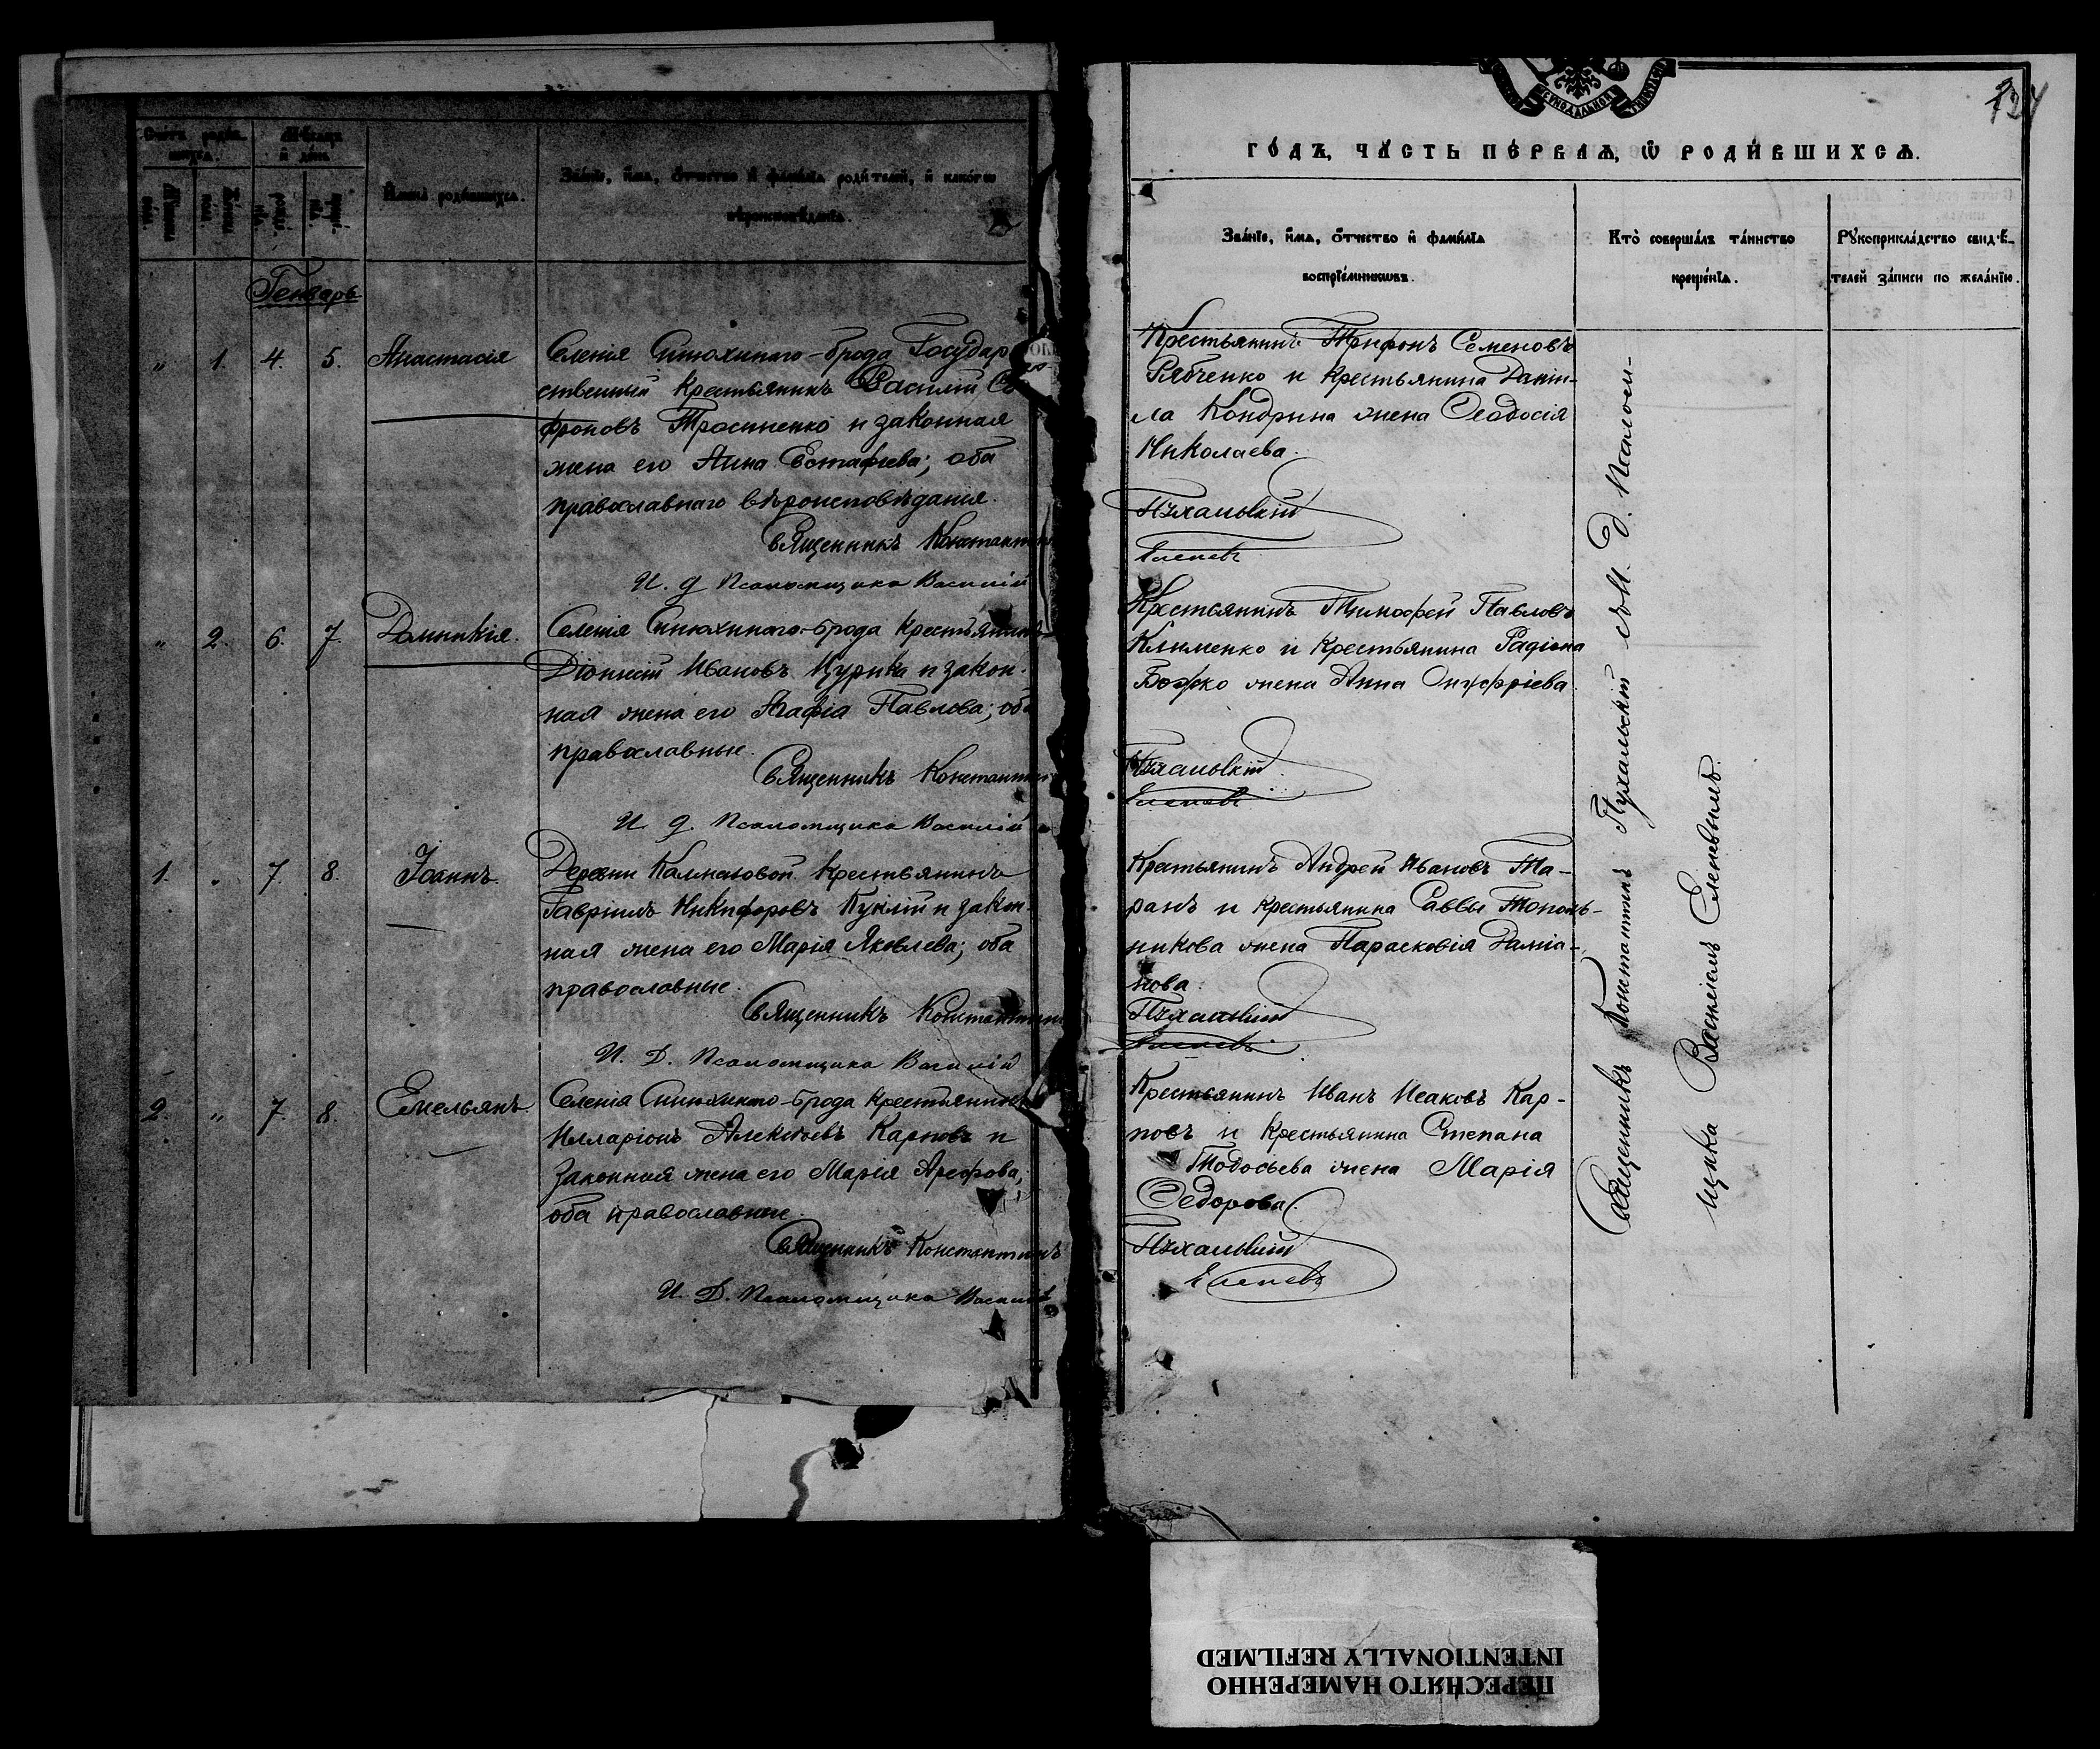 Счетъ родив-
шихся.
Мѣсяцъ
и день.
Имена родившихся.
Званїе, имя, отчество и фамилїя родителей, и какогѡ
вѣроисповѣданїя.
Мужеска
пола.
Женска
пола.
рожде-
нїя.
креще-
нїя.
Генварь
" 1. 4. 5. Анастасія
Селенія Синюхинаго-брода Государ-
ственный крестьянинъ Василій Со-
фроновъ Тросиненко и законная
жена его Анна Евстафіева; оба
православнаго вѣроисповѣданія.
Священникъ Константинъ
И. д. Псаломщика Василій
" 2. 6. 7. Домникія.
Селенія Синюхинаго-брода крестьянинъ
Діонисій Ивановъ Цурика и закон-
ная жена его Агафія Павлова; оба
православные.
Священникъ Константинъ
И. д. Псаломщика Василій
1. " 7. 8. Іоаннъ.
Деревни Калмазовой крестьянинъ
Гавріилъ Никифоровъ Куній и закон-
ная жена его Марія Яковлева; оба
православные.
Священникъ Константинъ
И. Д. Псаломщика Василій
2. " 7. 8. Емельянъ
Селенія Синюхинаго-брода крестьянинъ
Илларіонъ Алексѣевъ Карповъ и
законная жена его Марія Арефова;
оба православные.
Священникъ Константинъ
И. Д. Псаломщика Василій
СѴНОДАЛЬНОЙ
134
ГОДЪ, ЧАСТЬ ПЕРВАЯ, Ѡ РОДИВШИХСЯ.
Званїе, имя, отчество и фамилїя
воспрїемниковъ.
Кто совершалъ таинство
крещенїя.
Рукоприкладство свидѣ-
телей записи по желанїю.
Крестьянинъ Трифонъ Семеновъ
Рябченко и крестьянина Дании-
ла Кондрина жена Ѳеодосія
Николаева.
Пухальскій
Еленевъ
Крестьянинъ Тимофей Павловъ
Клименко и крестьянина Радіона
Божко жена Анна Онуфріева
Пухальскій
Еленевъ
Крестьянинъ Андрей Ивановъ Та-
ранъ и крестьянина Саввы Тополь-
никова жена Парасковія Даміа-
нова.
Пухальскій
Еленевъ
Крестьянинъ Иванъ Исаковъ Кар-
повъ и крестьянина Степана
Тодосьева жена Марія
Ѳедорова.
Пухальскій
Еленевъ
Священникъ Константинъ Пухальскій съ И. Д. Псалом-
щика Василіемъ Еленевымъ.
ПЕРЕСНЯТО НАМЕРЕННО
INTENTIONALLY REFILMED